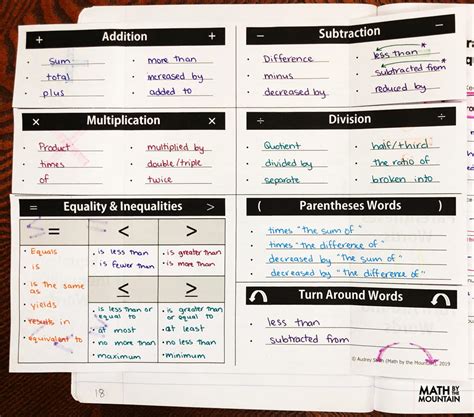 + Addition +
• sum
• total
• plus
• more than
• increased by
• added to
− Subtraction −
• Difference
• minus
• decreased by
• less than *
• subtracted from *
• reduced by
× Multiplication ×
• Product
• times
• of
• multiplied by
• double/triple
• twice
÷ Division ÷
• Quotient
• divided by
• separate
• half/third
• the ratio of
• broken into
= Equality & Inequalities >
=
• Equals
• is
• is the same as
• yields
• results in
• equivalent to
<
• is less than
• is fewer than
>
• is greater than
• is more than
≤
• is less than or equal to
• at most
• no more than
• maximum
≥
• is greater than or equal to
• at least
• no less than
• minimum
( Parentheses Words )
• times "the sum of"
• times "the difference of"
• decreased by "the sum of"
• decreased by "the difference of"
Turn Around Words
• less than
• subtracted from
(Math by the Mountain), 2019
18
MATH BY THE MOUNTAIN